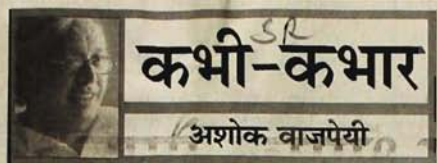 SR
कभी-कभार
अशोक वाजपेयी